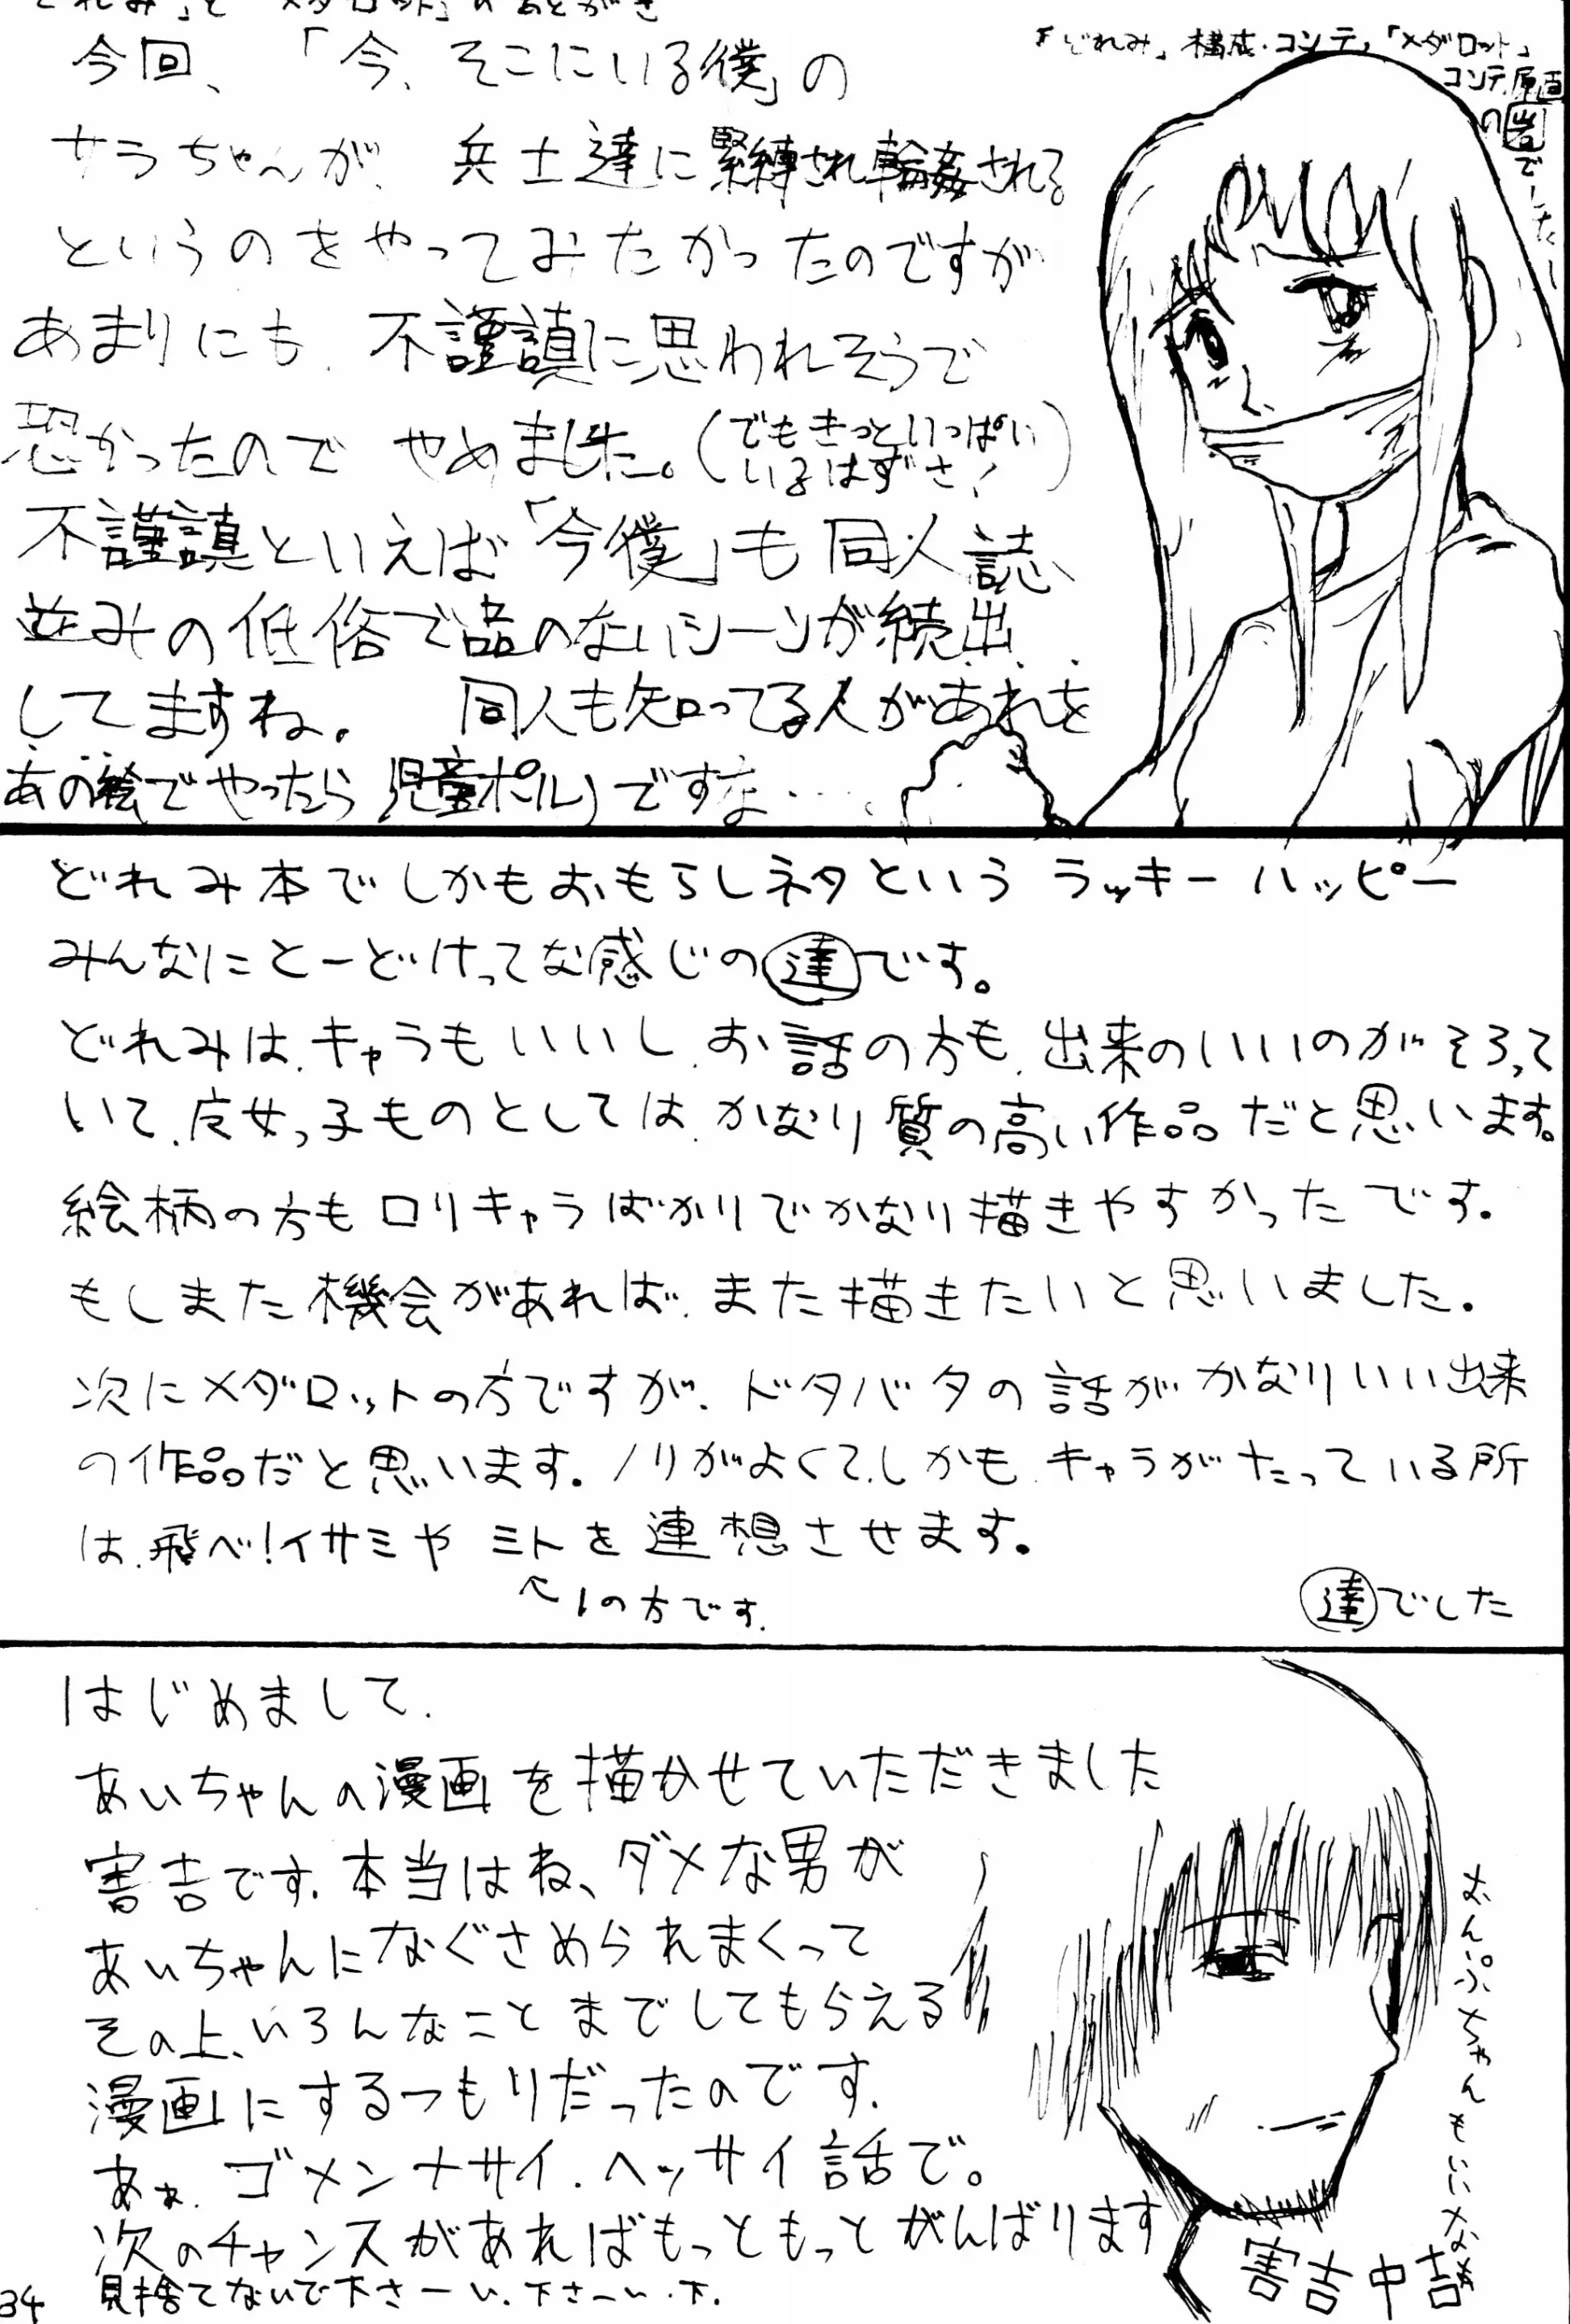 どれみ」と「メダロット」のあとがき
今回、「今、そこにいる僕」の
サラちゃんが、兵士達に緊縛され輪姦される
というのをやってみたかったのですが
あまりにも、不謹慎に思われそうで
恐かったので やめました。(でもきっといっぱい
いるはずさ!)
不謹慎といえば「今僕」も同人誌、
並みの低俗で品のないシーンが続出
してますね。 同人も知ってる人があれを
あの絵でやったら児童ポルノですな・・・
「どれみ」構成・コンテ,「メダロット」
コンテ,原画
の岩でしたー
どれみ本でしかもおもらしネタという ラッキーハッピー
みんなにとーどけってな感じの達です。
どれみは、キャラもいいし、お話の方も、出来のいいのがそろって
いて、女っ子ものとしては、かなり質の高い作品だと思います。
絵柄の方もロリキャラばかりでかなり描きやすかったです。
もしまた機会があれば、また描きたいと思いました。
次にメダロットの方ですが、ドタバタの話がかなりいい出来
の作品だと思います。ノリがよくて、しかも、キャラがたっている所
は、飛べ!イサミや ミトを連想させます。
↑1の方です.
達でした
はじめまして.
あいちゃんの漫画を描かせていただきました
害吉です.本当はね、ダメな男が
あいちゃんになぐさめられまくって
その上、いろんなことまでしてもらえる
漫画にするつもりだったのです.
あぁ.ゴメンナサイ.ヘッサイ話で。
次のチャンスがあればもっともっとがんばります
見捨てないで下さーい.下さーい.下.
おんぷちゃんもいいなぁ
害吉中吉
34